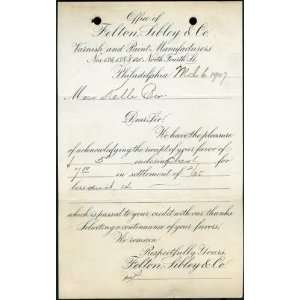 Office of
Felton, Sibley & Co.
Varnish and Paint Manufacturers
Nos 136, 138 & 140 North Fourth St.
Philadelphia Mch 6 1907
Dear Sir:
We have the pleasure
of acknowledging the receipt of your favor of
5 inclosing for
7 in settlement of
which is passed to your credit with our thanks
Soliciting a continuance of your favors,
We remain
Respectfully Yours,
Felton, Sibley & Co.